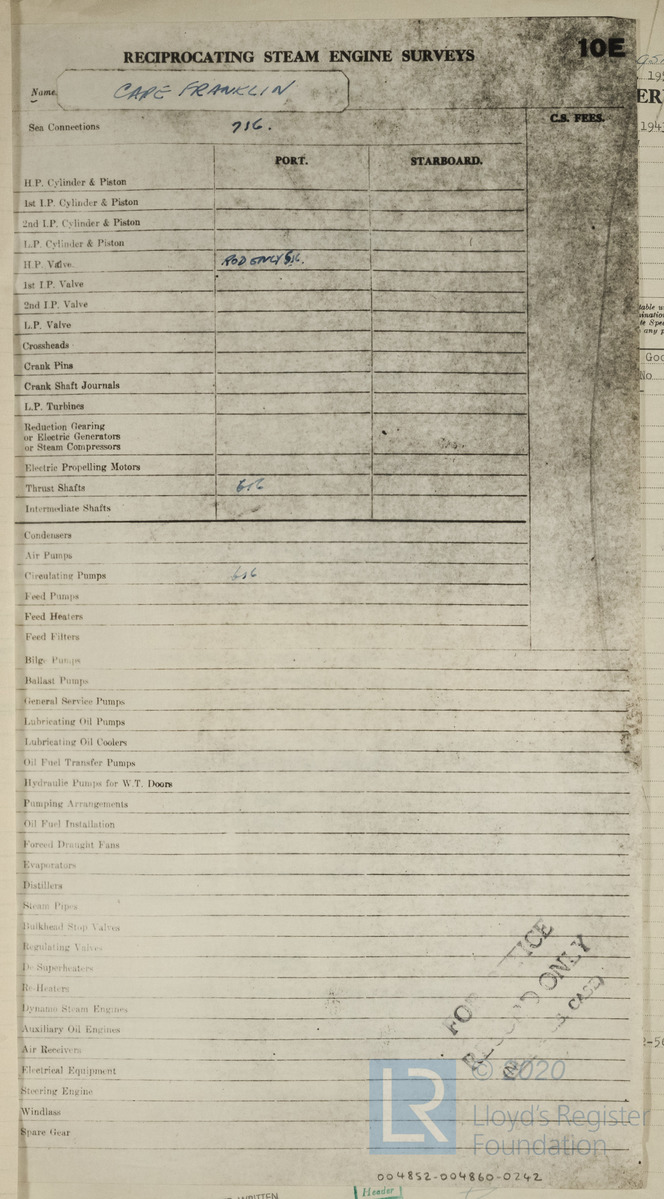 RECIPROCATING STEAM ENGINE SURVEYS
10E
Name CAPE FRANKLIN
Sea Connections 7/6.
C.S. FEES.
PORT. STARBOARD.
H.P. Cylinder & Piston
1st I.P. Cylinder & Piston
2nd I.P. Cylinder & Piston
L.P. Cylinder & Piston
H.P. Valve ROD ONLY
1st I.P. Valve
2nd I.P. Valve
L.P. Valve
Crossheads
Crank Pins
Crank Shaft Journals
L.P. Turbines
Reduction Gearing
or Electric Generators
or Steam Compressors
Electric Propelling Motors
Thrust Shafts 6/6
Intermediate Shafts
Condensers
Air Pumps
Circulating Pumps 6/6
Feed Pumps
Feed Heaters
Feed Filters
Bilge Pumps
Ballast Pumps
General Service Pumps
Lubricating Oil Pumps
Lubricating Oil Coolers
Oil Fuel Transfer Pumps
Hydraulic Pumps for W.T. Doors
Pumping Arrangements
Oil Fuel Installation
Forced Draught Fans
Evaporators
Distillers
Steam Pipes
Bulkhead Stop Valves
Regulating Valves
De-Superheaters
Re-Heaters
Dynamo Steam Engines
Auxiliary Oil Engines
Air Receivers
Electrical Equipment
Steering Engine
Windlass
Spare Gear
ONLY
CASE)
LR
© 2020
Lloyd's Register
Foundation
004852-004860-0242
Header